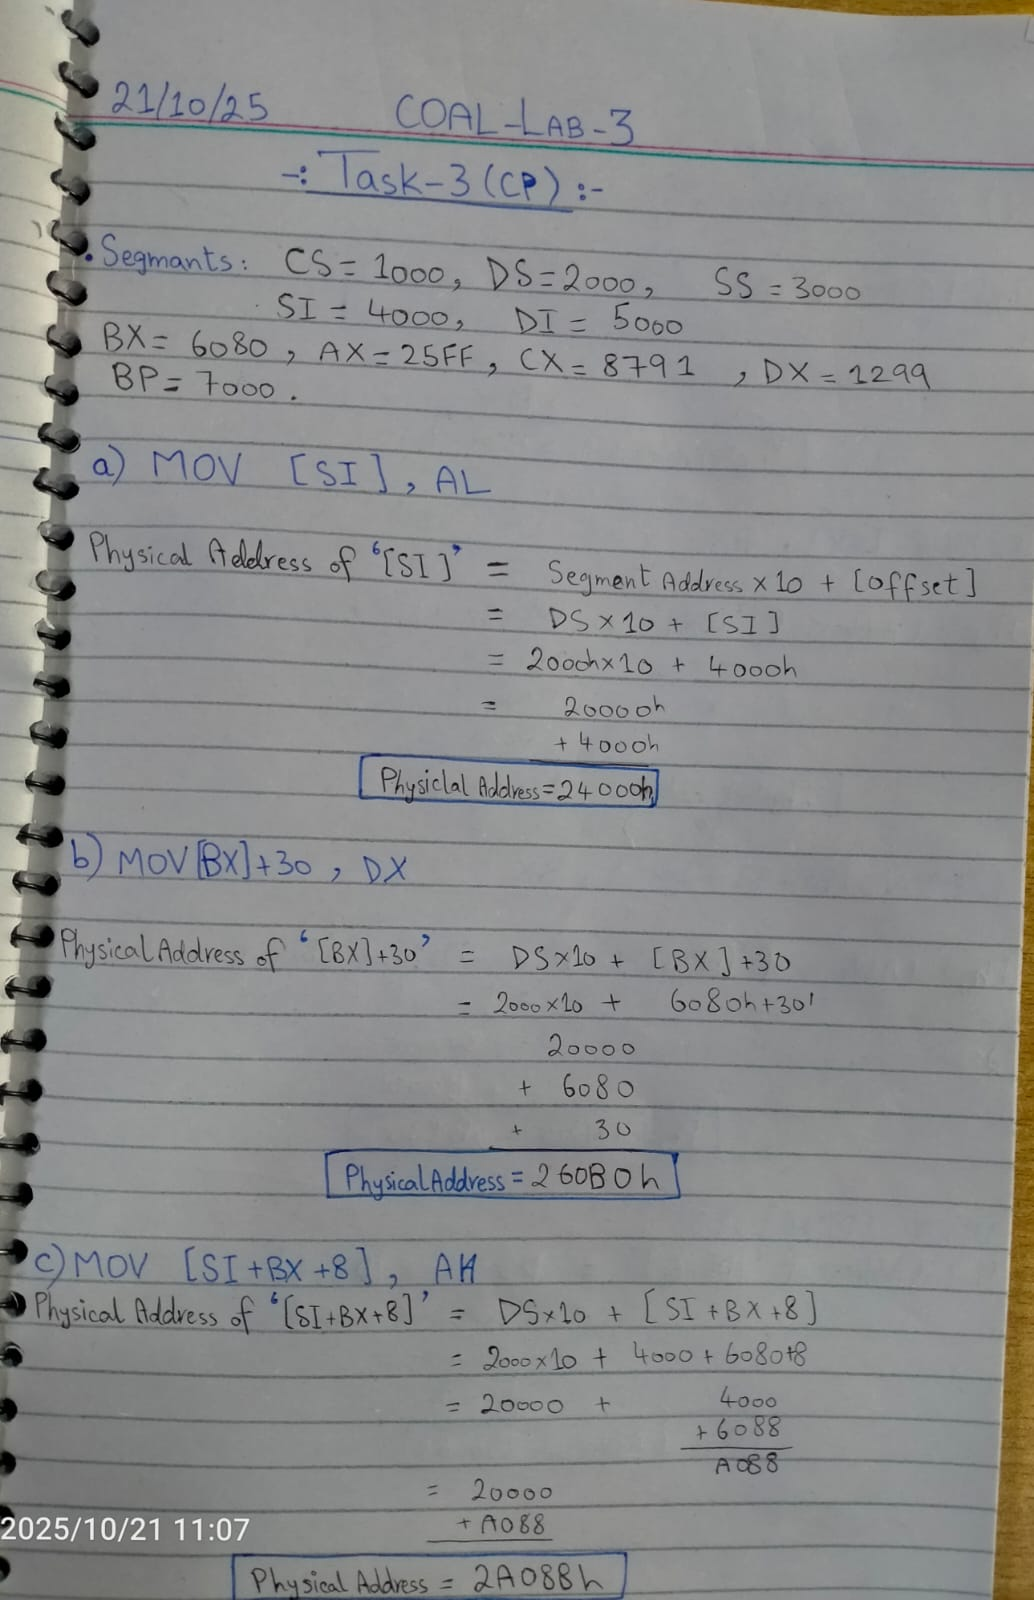 21/10/25 COAL-LAB-3
-: Task-3 (CP) :-
• Segmants: CS = 1000, DS = 2000, SS = 3000
SI = 4000, DI = 5000
BX = 6080, AX = 25FF, CX = 8791, DX = 1299
BP = 7000.
a) MOV [SI], AL
Physical Address of '[SI]' = Segment Address x 10 + [offset]
= DS x 10 + [SI]
= 2000h x 10 + 4000h
= 20000h
+ 4000h
Physiclal Address = 24000h
b) MOV [BX]+30, DX
Physical Address of '[BX]+30' = DS x 10 + [BX]+30
= 2000 x 10 + 6080h+30
20000
+ 6080
+ 30
Physical Address = 260B0h
c) MOV [SI+BX+8], AH
Physical Address of '[SI+BX+8]' = DS x 10 + [SI+BX+8]
= 2000 x 10 + 4000 + 6080+8
= 20000 + 4000
+ 6088
A088
= 20000
+ A088
2025/10/21 11:07
Physical Address = 2A088h